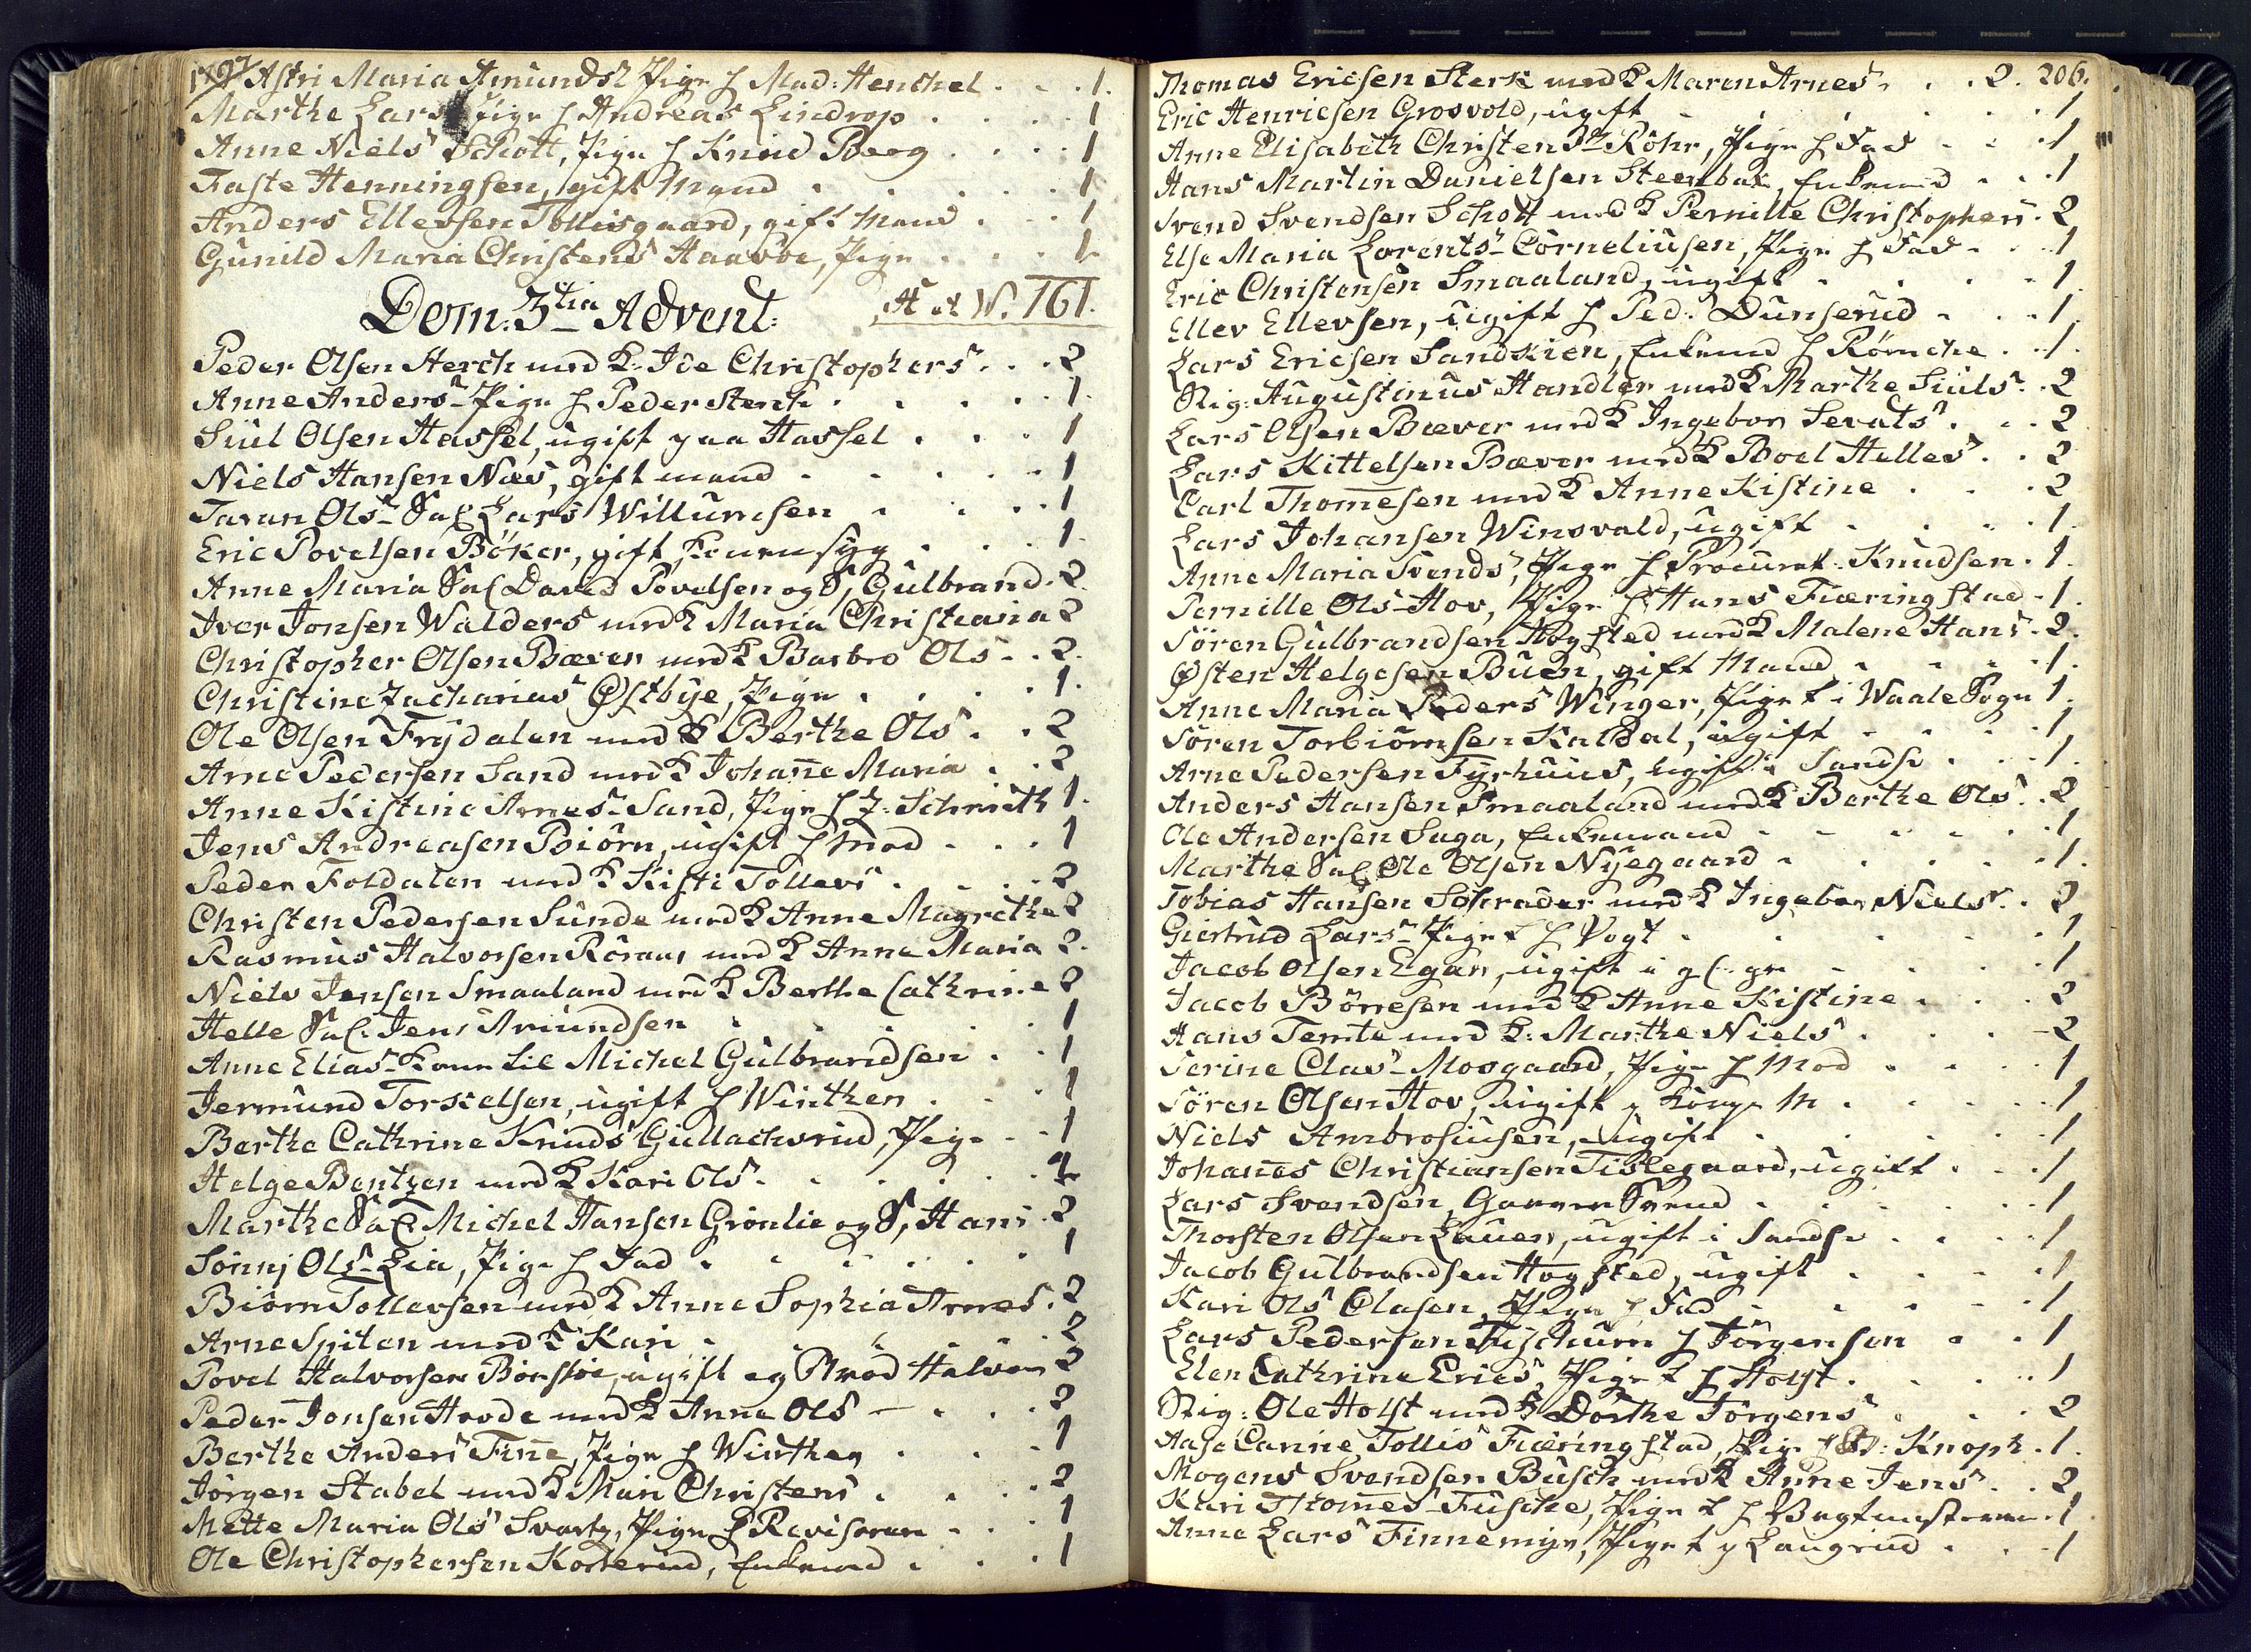 1797 Astri Maria Amunds Pige h Mad: Henchel . . . 1.
Marthe Lars Pige h Andreas Lindrop . . . . 1
Anne Niels Schott, Pige h Knud Berg . . . . 1
Faste Henningsen, gift Mand . . . . 1
Anders Ellevsen Tollisgaard, gift Mand . . . 1
Gunild Maria Christens Haavoe, Pige . . . . 1
Dom. 3tia Advent: A et V. 161.
Peder Olsen Sterch med K. Ide Christophers . . . 2
Anne Anders Pige h Peder Sterch . . . . 1.
Siul Olsen Hassel, ugift paa Hassel . . . 1
Niels Hansen Næs, gift mand . . . . 1
Taran Ols Sal Lars Willumsen . . . . 1
Eric Povelsen Böker, gift, Konen syg . . . 1.
Anne Maria Sal David Povelsen og S, Gulbrand . 2
Iver Jonsen Walders med K Maria Christiana 2
Christopher Olsen Bæver med K Barbro Ols . . 2.
Christine Zacharias Østbye, Pige . . . . 1.
Ole Olsen Frydalen med K Berthe Ols . . 2
Arne Pedersen Sand med K Johanne Maria . . 2
Anne Kistine Arnes Sand, Pige h Z. Schmith 1.
Jens Andreasen Biörn, ugift h Mod . . . 1
Peder Foldalen med K Kisti Tollevs . . . . 2
Christen Pedersen Sunde med K Anne Magrethe 2
Rasmus Halvorsen Röraas med K Anne Maria 2.
Niels Jensen Smaaland med K Berthe Cathrine 2
Helle Sal. Jens Amundsen . . . . 1
Anne Elias Kone til Michel Gulbrandsen . . 1
Jermund Torkelsen, ugift h Winther . . . 1
Berthe Cathrine Knuds Gullachsrud, Pige . . 1
Helge Bentzen med K Kari Ols . . . . 2
Marthe Sal Michel Hansen Grönlie og S, Hans . 2
Sönnj Ols Lia, Pige h Fad . . . . 1
Biörn Tollevsen med K Anne Sophia Arnes . 2
Arne Spiten med K Kari . . . . 2
Povel Halvorsen Börstöe, ugift og Brod Halvor 2
Peder Jonsen Hvode med K Anne Ols . . . 2
Berthe Anders Finne, Pige h Winther . . . 1
Jörgen Stabel med K Mari Christens . . . 2
Mette Maria Ols Svartz, Pige h Revisoren . . . 1
Ole Christophersen Korterud, Enkemd . . . 1
206.
Thomas Ericsen Sterk med K Maren Arnes . . . 2.
Eric Henricsen Grosvold, ugift . . . . 1
Anne Elisabeth Christens Röhr, Pige h Fad . . . 1
Hans Martin Danielsen Steenbak, Enkemd . . . 1
Svend Svendsen Schott med K Pernille Christophers . 2
Else Maria Lorents Corneliusen, Pige h Fad . . . 1
Eric Christensen Smaaland, ugift . . . . 1.
Ellev Ellevsen, ugift h Ped. Dunserud . . . 1.
Lars Ericsen Sandskien, Enkemd h Römche . . 1.
Sig: Augustinus Handler med K Marthe Siuls . . 2
Lars Olsen Bæver med K Ingebor Sevats . . . 2
Lars Kittelsen Bæver med K Boel Helles . . 2
Carl Thomesen med K Anne Kistine . . . 2
Lars Johansen Winsvald, ugift . . . . 1.
Anne Maria Svends, Pige h Procurat: Knudsen . 1.
Pernille Ols Hov, Pige h Hans Fiæringstad . 1.
Sören Gulbrandsen Høysted med K Malene Hans . 2.
Østen Helgesen Buen, gift Mand . . . . 1.
Anne Maria Peders Winger, Pige t i Waale Sogn 1.
Sören Torbiörnsen Kaldal, ugift . . . . 1
Arne Pedersen Fyrhuus, ugift i Sandsv . . . 1.
Anders Hansen Smaaland med K Berthe Ols . . 2
Ole Andersen Saga, Enkemand . . . . 1
Marthe Sal Ole Olsen Nyegaard . . . . 1.
Tobias Hansen Schrader med K Ingebor Niels . . 2
Giertrud Lars Pige t h Vogt . . . . 1
Jacob Olsen Egar, ugift . . . . 1
Jacob Börresen med K Anne Kistine . . . 2
Hans Temte med K. Marthe Niels . . . 2
Serine Clas Mosgaard, Pige h Mod . . . 1
Sören Olsen Hov, ugift p Konge M . . . . 1
Niels Ambrosiusen, ugift . . . . 1
Johannes Christiansen Tislegaard, ugift . . . 1
Lars Svendsen, Garver Svend . . . . 1
Thorsten Olsen Lauer, ugift i Sandsv . . . 1
Jacob Gulbrandsen Høysted, ugift . . . . 1
Kari Ols Clasen, Pige h Fad . . . . 1
Lars Pedersen Fischum h Jörgensen . . 1
Elen Cathrine Erics, Pige t h Holst . . . . 1
Sig: Ole Holst med K Dorthe Jörgens . . . 2
Aase Carine Tollis Fiæringstad, Pige h Hr: Knoph . 1.
Mogens Svendsen Busch med K Anne Jens . . 2
Kari Thomes Fusche, Pige t h Vagtmesteren . 1
Anne Lars Finnemyr, Pige t p Laugrud . . . 1